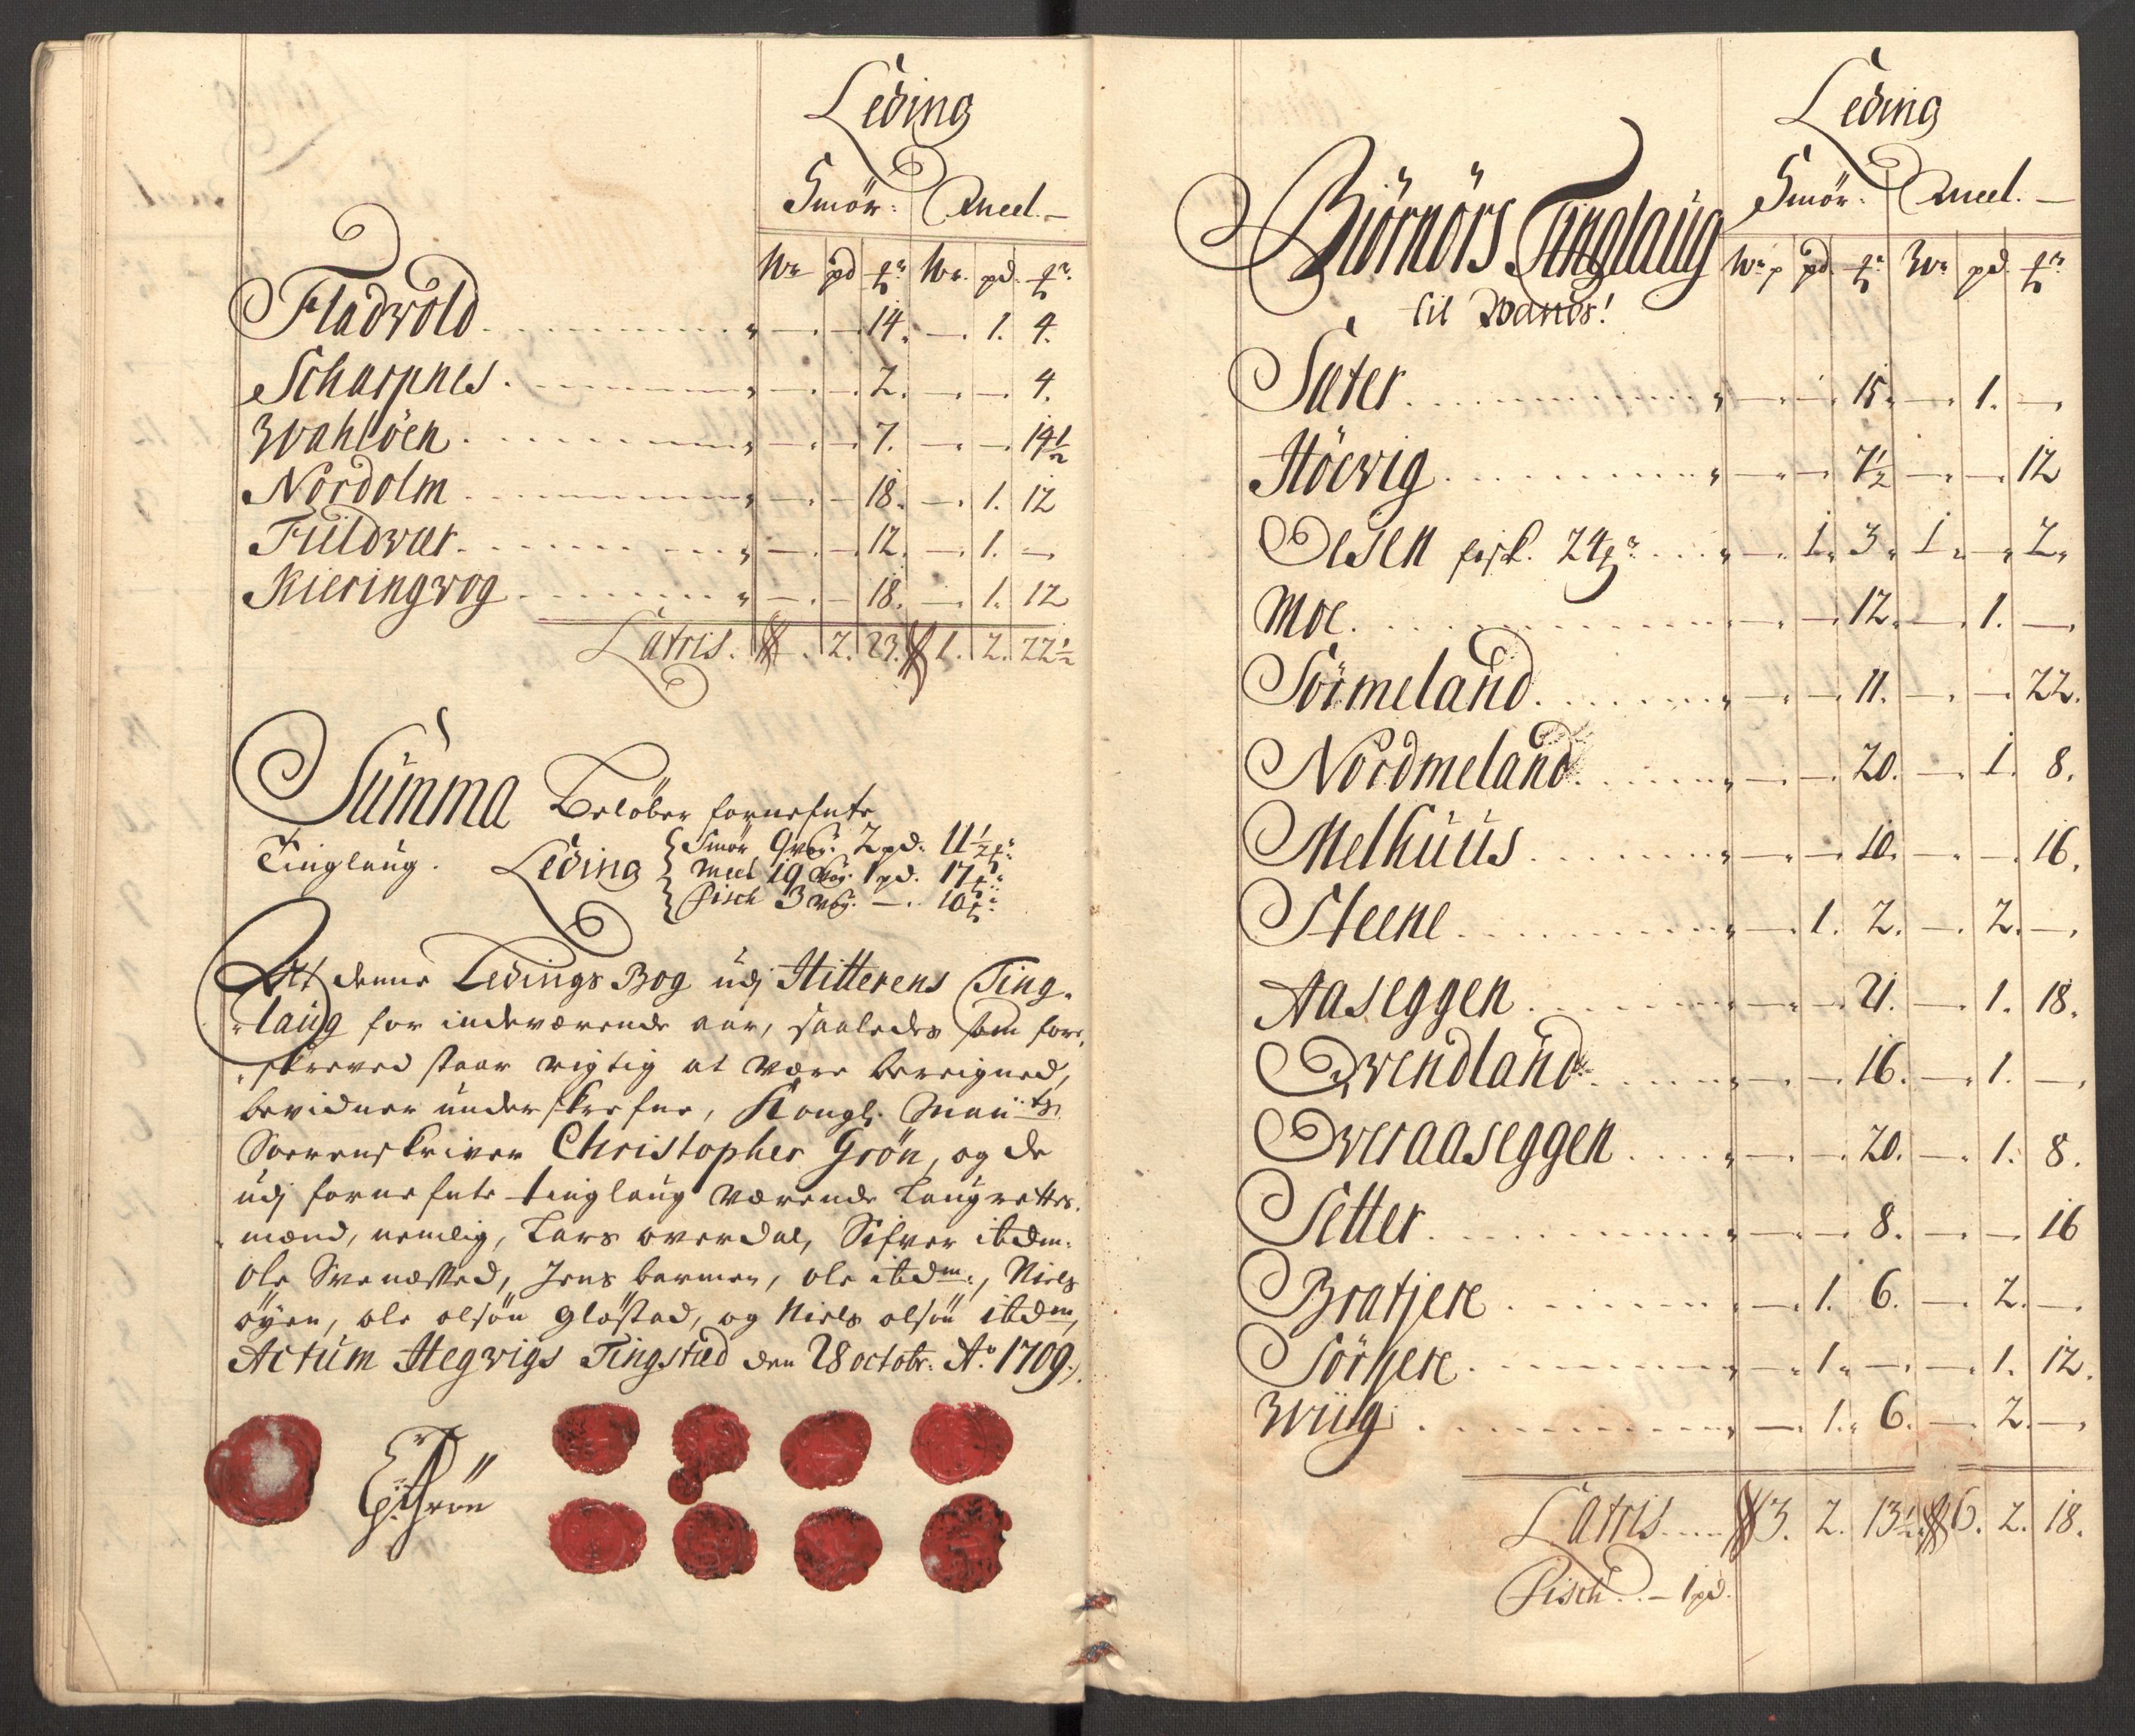 Leding
Smör. Meel. —
Wr pd ℔r Wr. pd. ℔r.
Fladvold. — — 14. — 1. 4.
Scharpnes. — — 2. — — 4.
Wahlöen. — — 7. — — 14½
Nordolm — — 18. — 1. 12
Fieldvær. — — 12. — 1. —
Kieringvog — — 18. — 1. 12
Latris. — 2. 23. 1. 2. 22½
Summa Belöber fornefnte
Tinglaug. Leding
Smör 9 vog. 2 pd. 11½ ℔r.
Meel 19 vog. 1 pd. 17 ℔r.
Fisch 3 vog. — 10 ℔r.
At denne Ledings Bog udj Hitterens Ting-
laug for indeværende aar, saaledes som fore-
skreved staar rigtig at være bereigned,
bevidner underskrefne, Kongl. May:ts
Sorenskriver Christopher Grön, og de
udj fornefnte tinglaug værende Laugrettes-
mænd, nemlig, Lars overdal, Sifver ibdm:
Ole Svenæsted, Jens barmen, ole ibdm:, Niels
öÿen, ole olsön glostad, og Niels olsön ibdm,
Actum Hegvigs Tingstæd den 28 octobr. Ao. 1709.
Grön
Leding
Smör. Meel. —
Biörnörs Tinglaug Wr pd. ℔r Wr pd. ℔r
til Wands!
Sæter. — — 15. — 1. —
Höevig. — — 7½ — — 12
Oesen fisk. 24 ℔r. — 1. 3. 1. — 2.
Moe. — — 12. — 1. —
Sörmeland. — — 11. — — 22.
Nordmeland. — — 20. — 1. 8.
Melhuus. — — 10. — — 16.
Steene. — 1. 2. — 2. —
Aaseggen. — — 21. — 1. 18.
Qvendland. — — 16. — 1. —
Overaaseggen. — — 20. — 1. 8.
Setter. — — 8. — — 16
Bratjere. — 1. 6. — 2. —
Sörjere. — 1. — — 1. 12.
Wiig. — 1. 6. — 2. —
Latris 3. 2. 13½ 6. 2. 18.
Fisch. — 1 pd.